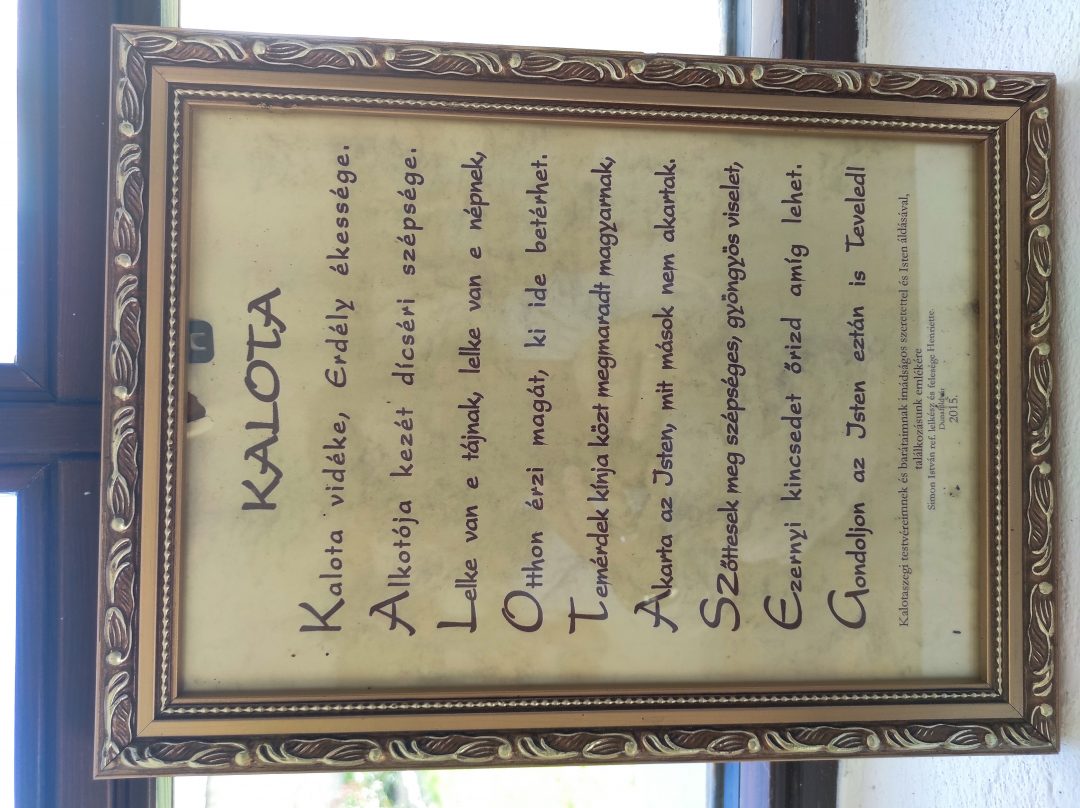 KALOTA
Kalota vidéke, Erdély ékessége.
Alkotója kezét dícséri szépsége.
Lelke van e tájnak, lelke van e népnek,
Otthon érzi magát, ki ide betérhet.
Temérdek kínja közt megmaradt magyarnak,
Akarta az Isten, mit mások nem akartak.
Szőttesek meg szépséges, gyöngyös viselet,
Ezernyi kincsedet őrizd amíg lehet.
Gondoljon az Isten eztán is Teveled!
Kalotaszegi testvéreimnek és barátaimnak imádságos szeretettel és Isten áldásával,
találkozásunk emlékére
Simon István ref. lelkész és felesége Henriette.
2015.